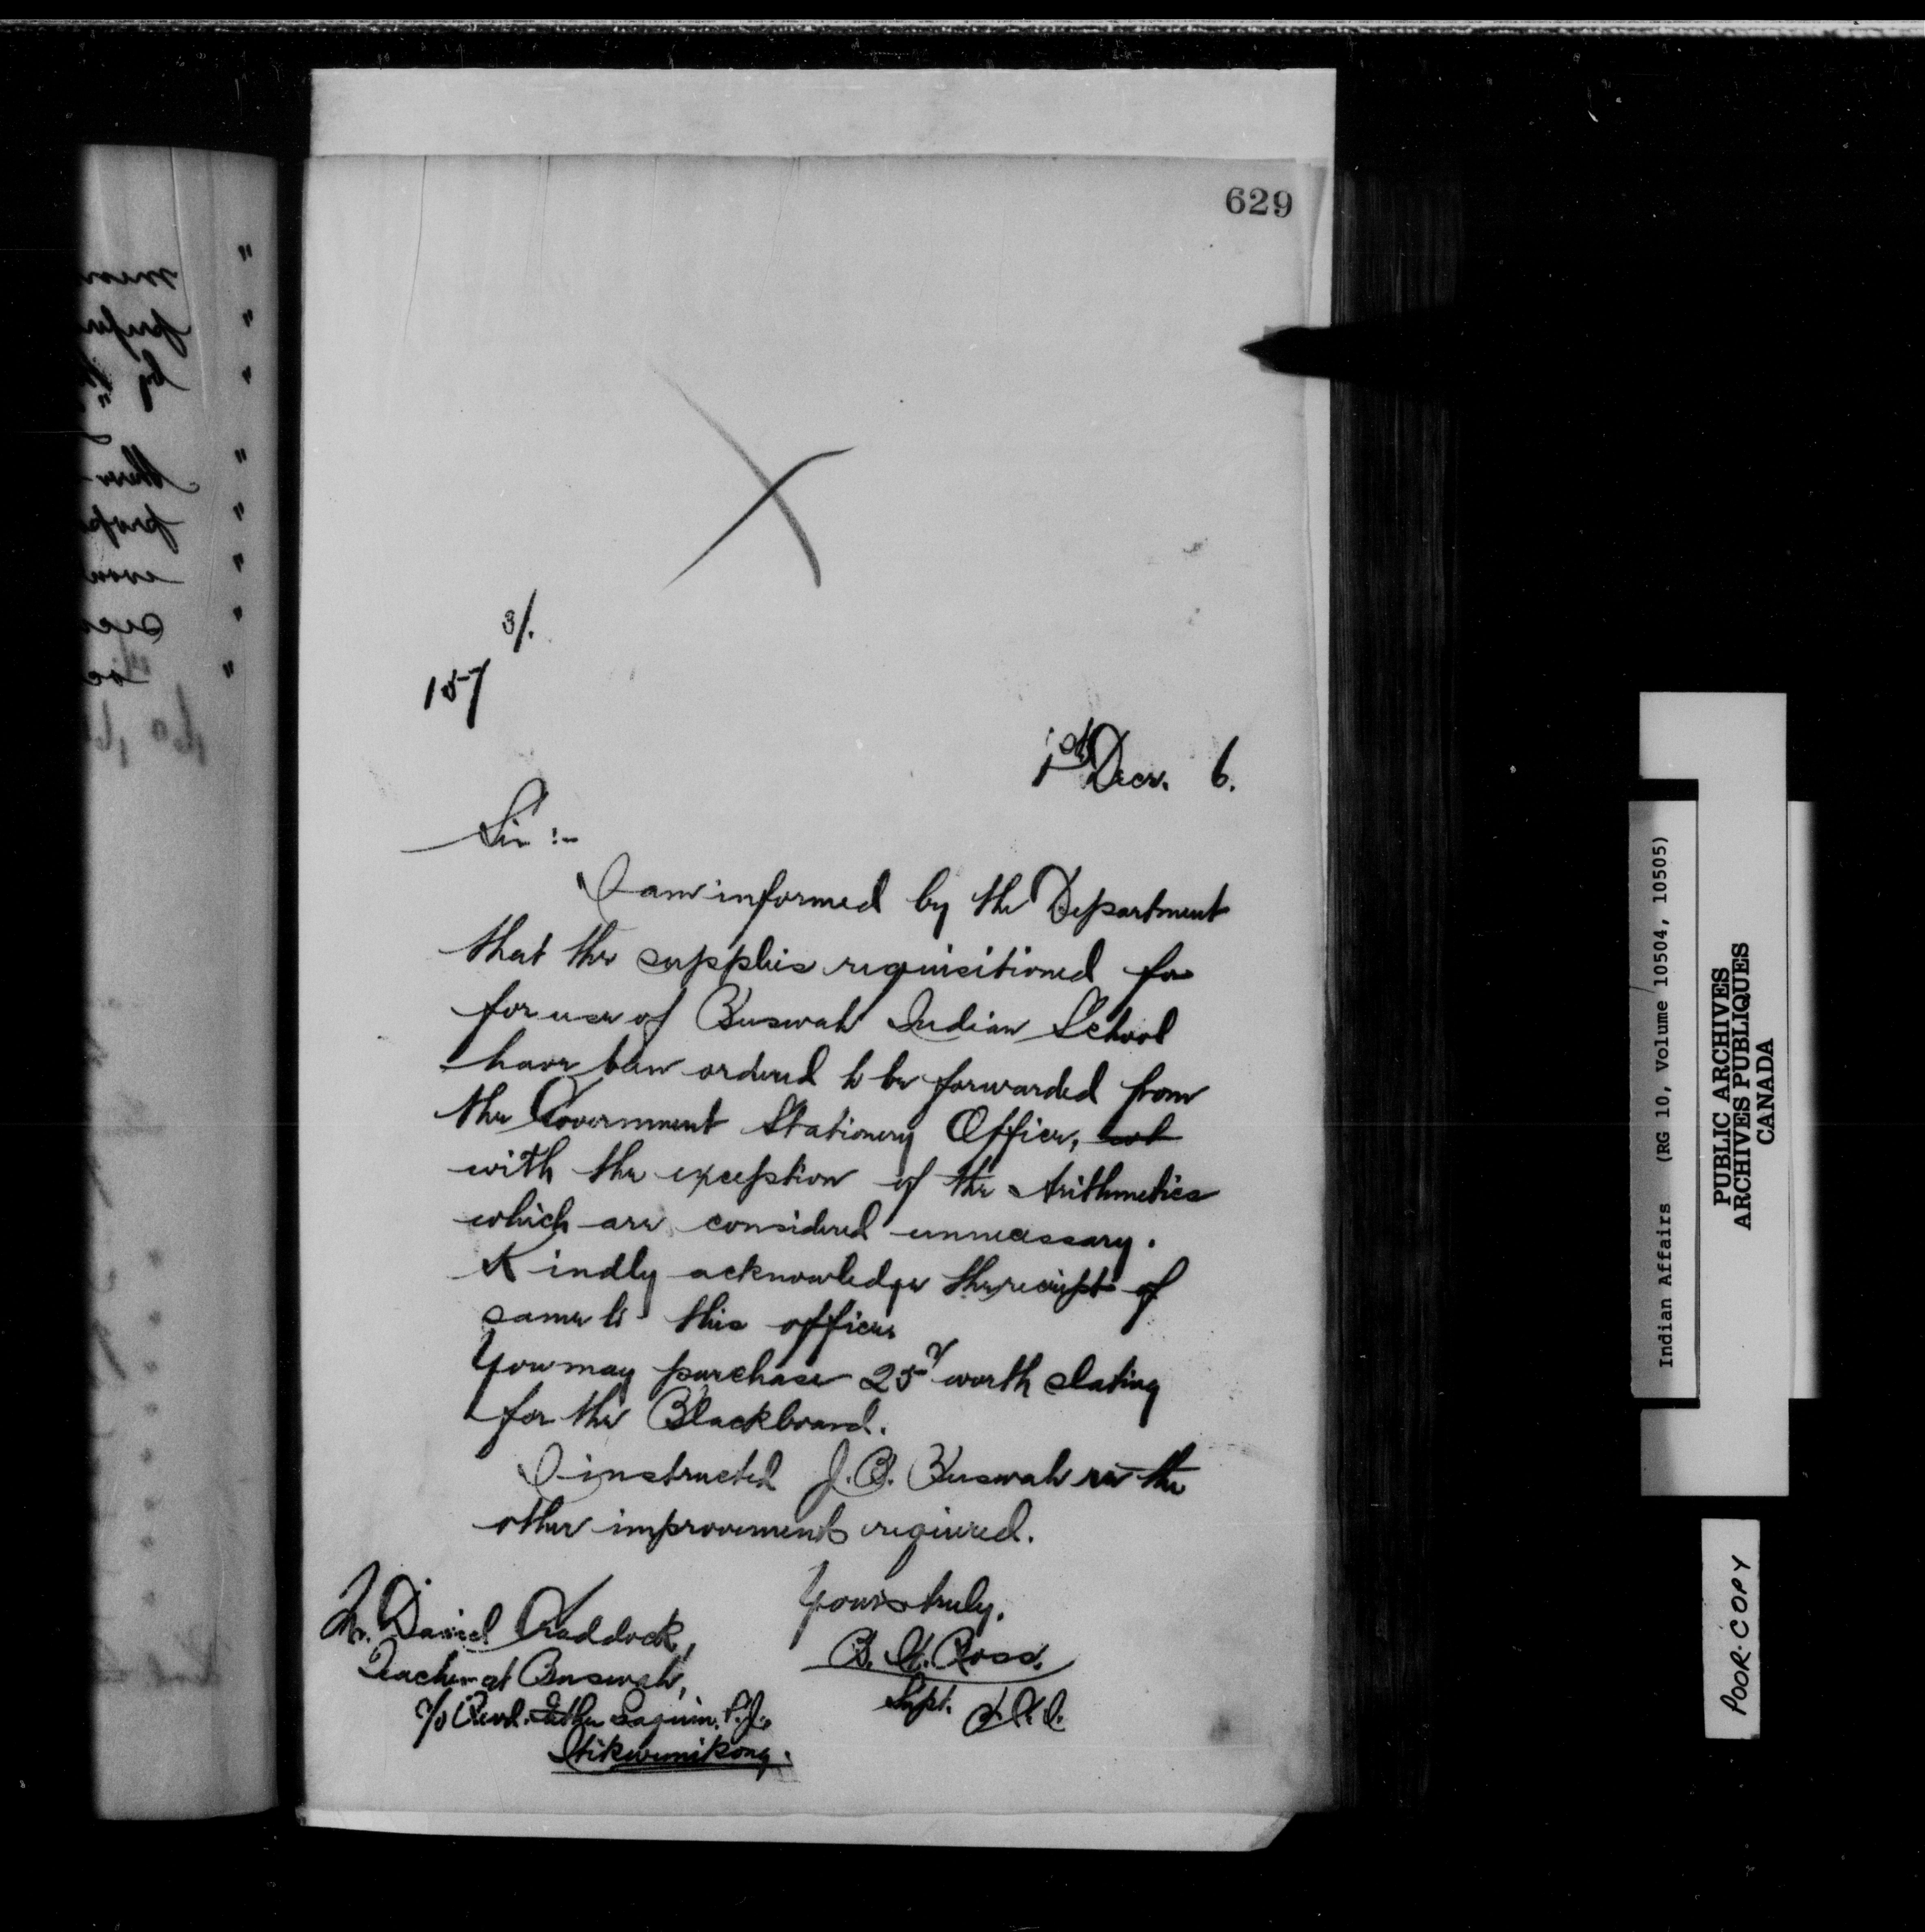 629
3/.
157
1st Decr. 6.
Sir :-
I am informed by the Department
that the supplies requisitioned for
for use of Buswah Indian School
have been ordered to be forwarded from
the Government Stationery Office,
with the exception of the Arithmetics
which are considered unnecessary.
Kindly acknowledge the receipt of
same to this office.
You may purchase 25¢ worth slating
for the Blackboard.
I instructed J.B. Buswah re the
other improvements required.
Yours truly,
B. W. Ross.
Supt.
Mr. Daniel Craddock,
Teacher at Buswah,
c/o Revd. Father
Wikwemikong.
Indian Affairs (RG 10, Volume 10504, 10505)
PUBLIC ARCHIVES
ARCHIVES PUBLIQUES
CANADA
POOR COPY